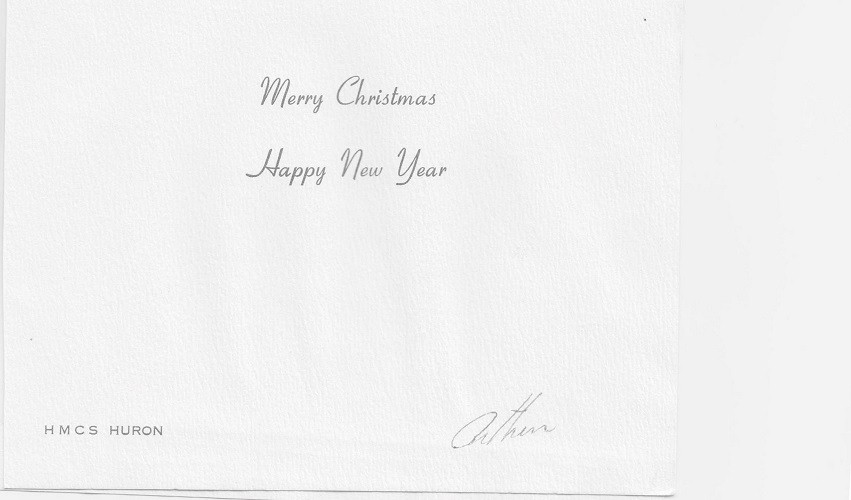 Merry Christmas
Happy New Year
HMCS HURON
Arthur